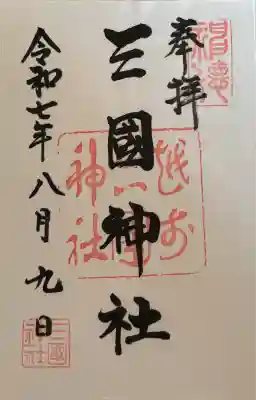 奉拝
三國神社
令和七年八月九日
越前
神社
三國
神社